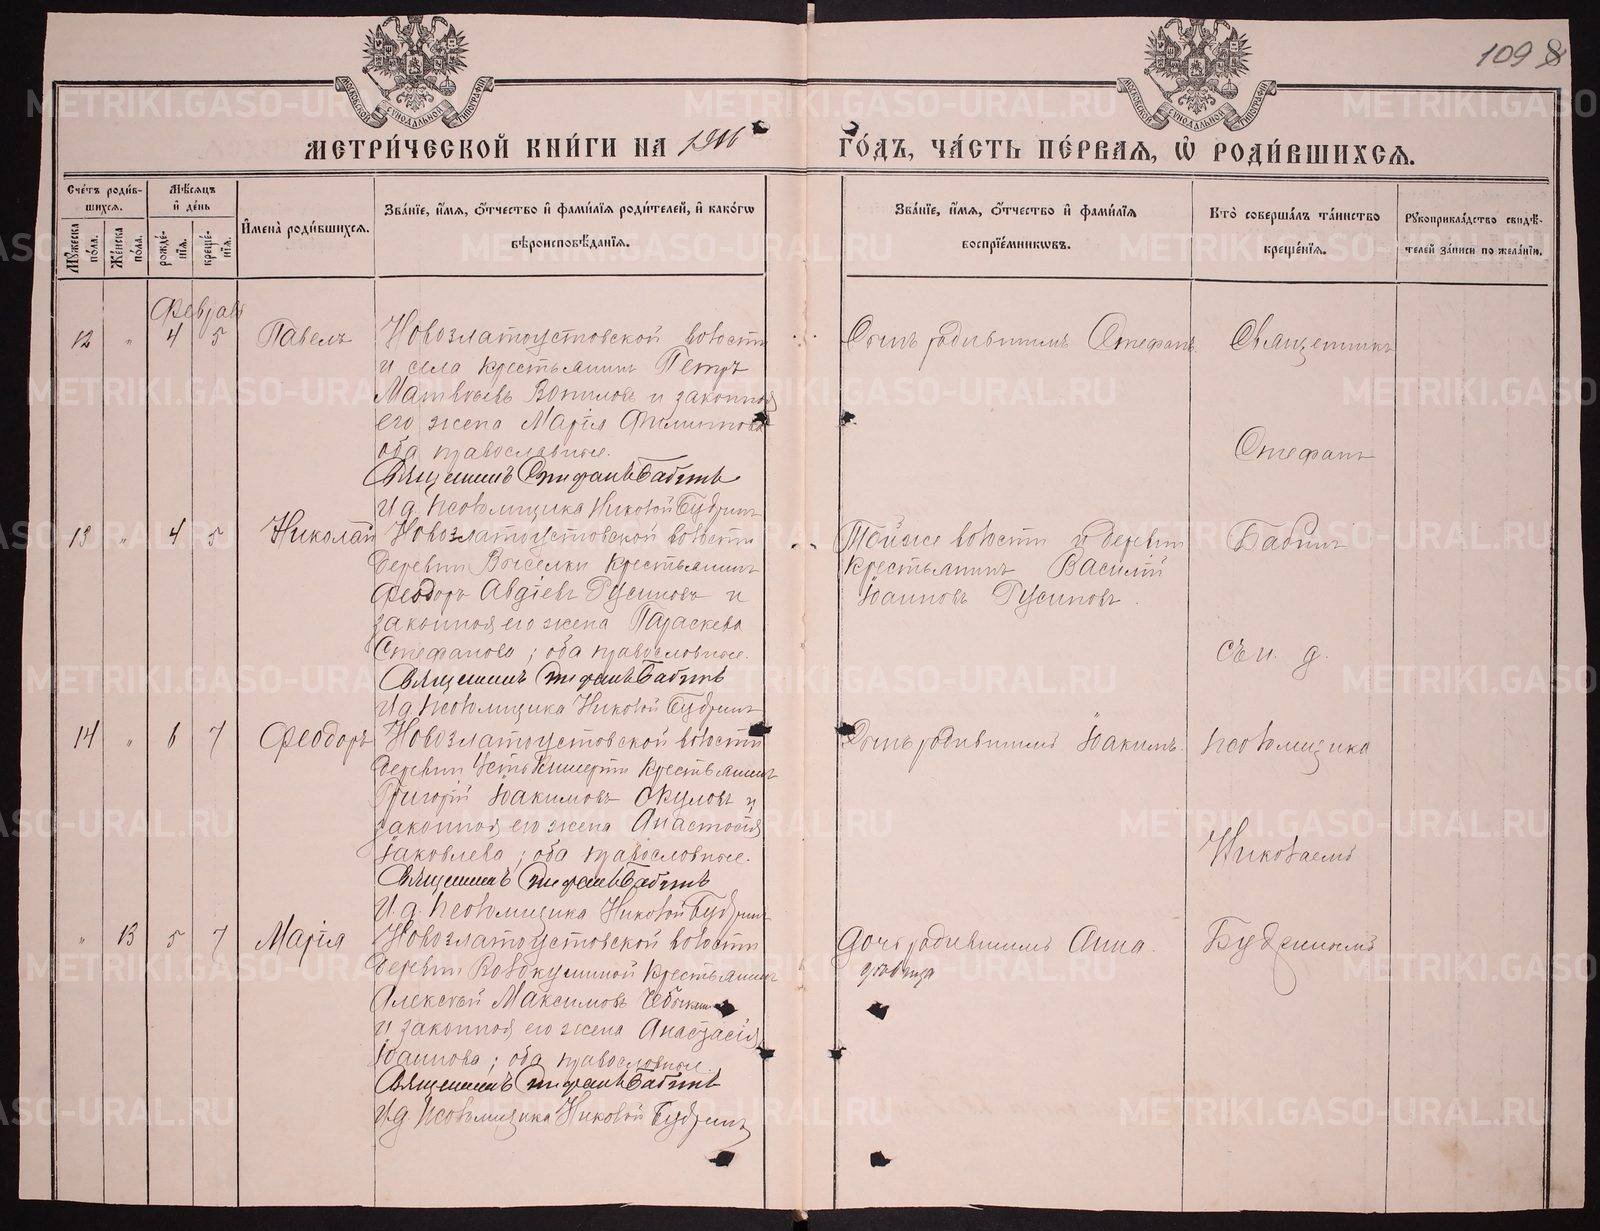 109 8
МОСКОВСКОЙ СѴНОДАЛЬНОЙ ТИПОГРАФІИ
МОСКОВСКОЙ СѴНОДАЛЬНОЙ ТИПОГРАФІИ
МЕТРИ́ЧЕСКОЙ КНИ́ГИ НА 1906
ГО́ДЪ, ЧА́СТЬ ПЕ́РВАЯ, Ѡ҆ РОДИ́ВШИХСЯ.
Сче́тъ роди́в-
шихся.
Мѣ́сяцъ
и҆ де́нь
Мꙋ́жеска по́ла.
Же́нска по́ла.
рожде́-
нїя.
креще́-
нїя.
И҆мена̀ роди́вшихся.
Зва́нїе, и҆́мя, ѻ҆́тчество и҆ фами́лїѧ роди́телей, и҆ како́гѡ
вѣроисповѣ́данїѧ.
Зва́нїе, и҆́мя, ѻ҆́тчество и҆ фами́лїѧ
воспрїе́мникѡвъ.
Кто̀ соверша́лъ та́инство
креще́нїѧ.
Рꙋкоприкла́дство свидѣ́-
телей за́писи по жела́нїю.
Февраль
12 " 4 5 Павелъ
Новозлатоустовской волости
и села крестьянинъ Петръ
Матвѣевъ и законная
его жена Марія Филиппова
оба православные.
Священникъ Стефанъ Бабинъ
И д. псаломщика Николай Будринъ
Сынъ родившимъ Стефанъ.
Священникъ
Стефанъ
13 " 4 5 Николай
Новозлатоустовской волости
деревни Выселки крестьянинъ
Феодоръ Авдіевъ Русиновъ и
законная его жена Параскева
Стефанова; оба православные.
Священникъ Стефанъ Бабинъ
И д. псаломщика Николай Будринъ
Тойже волости и деревни
крестьянинъ Василій
Іоанновъ Русиновъ.
Бабинъ
съ и. д.
14 " 6 7 Феодоръ
Новозлатоустовской волости
деревни Усть Кишерти крестьянинъ
Григорій Іоакимовъ Окуловъ и
законная его жена Анастасія
Іаковлева; оба православные.
Священникъ Стефанъ Бабинъ
И. д. псаломщика Николай Будринъ
Іоакимъ.
псаломщика
Николаемъ
" 13 5 7 Марія
Новозлатоустовской волости
деревни крестьянинъ
Алексѣй Максимовъ
и законная его жена Анастасія
Іоаннова; оба православные.
Священникъ Стефанъ Бабинъ
И д псаломщика Николай Будринъ
Дочь родившимъ Анна.
дѣвица
Будринымъ
METRIKI.GASO-URAL.RU